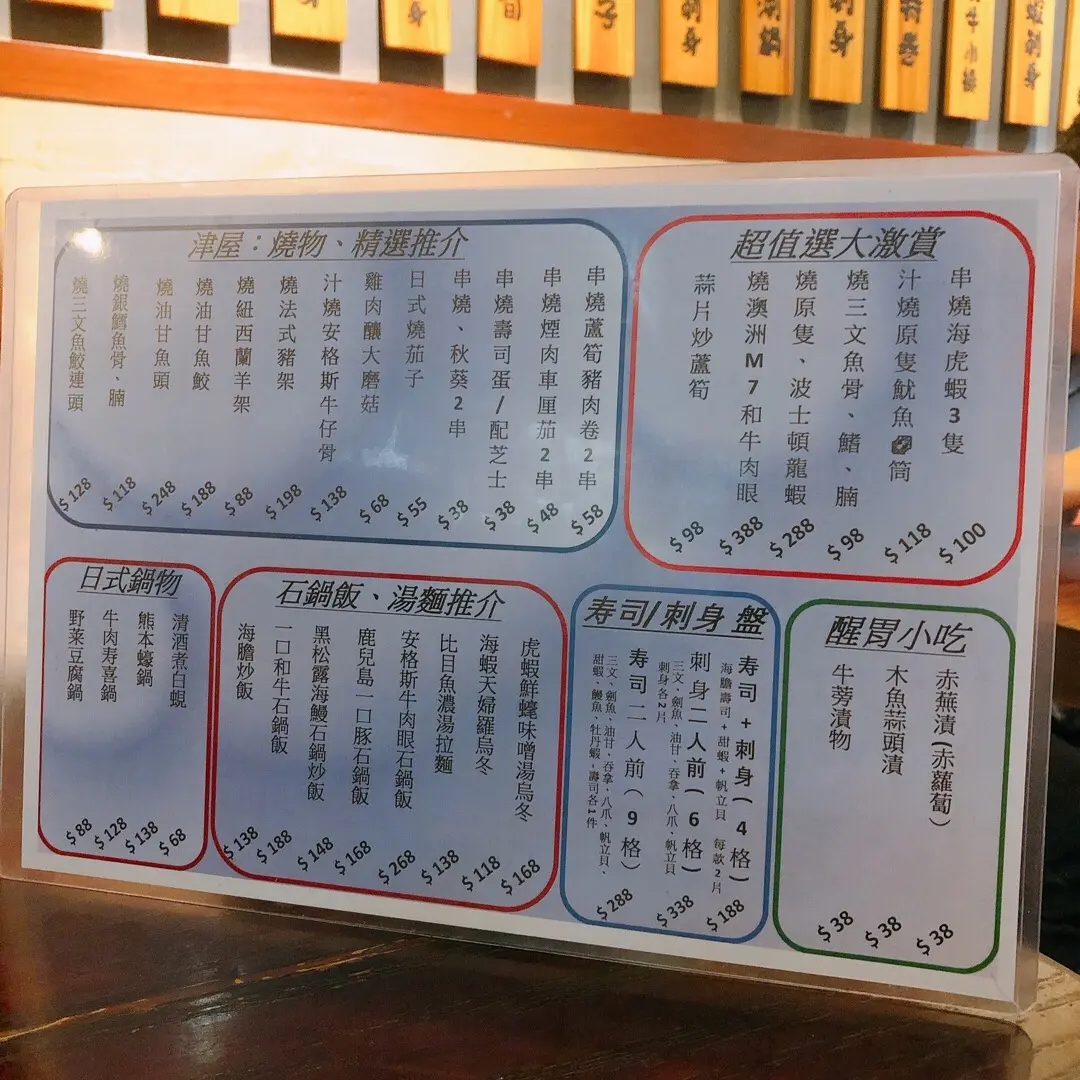 身
旬
子
刺身
刺身
津屋：燒物、精選推介
串燒蘆筍豬肉卷2串 $58
串燒煙肉車厘茄2串 $48
串燒壽司蛋/配芝士 $38
串燒、秋葵2串 $38
日式燒茄子 $55
雞肉釀大磨菇 $68
汁燒安格斯牛仔骨 $138
燒法式豬架 $198
燒紐西蘭羊架 $88
燒油甘魚鮫 $188
燒油甘魚頭 $248
燒銀鱈魚骨、腩 $118
燒三文魚鮫連頭 $128
超值選大激賞
串燒海虎蝦3隻 $100
汁燒原隻魷魚筒 $118
燒三文魚骨、鰭、腩 $98
燒原隻、波士頓龍蝦 $288
燒澳洲M7和牛肉眼 $388
蒜片炒蘆筍 $98
日式鍋物
清酒煮白蜆 $68
熊本蠔鍋 $138
牛肉寿喜鍋 $128
野菜豆腐鍋 $88
石鍋飯、湯麵推介
虎蝦鮮蠔味噌湯烏冬 $168
海蝦天婦羅烏冬 $118
比目魚濃湯拉麵 $138
安格斯牛肉眼石鍋飯 $268
鹿兒島一口豚石鍋飯 $168
黑松露海鰻石鍋炒飯 $148
一口和牛石鍋飯 $188
海膽炒飯 $138
寿司/刺身 盤
寿司+刺身(4格) $188
海膽壽司+甜蝦+帆立貝 每款2片
刺身二人前(6格) $338
三文、劍魚、油甘、吞拿、八爪、帆立貝
刺身各2片
寿司二人前(9格) $288
三文、劍魚、油甘、吞拿、八爪、帆立貝、
甜蝦、鰻魚、牡丹蝦、壽司各1件
醒胃小吃
赤蕪漬(赤蘿蔔) $38
木魚蒜頭漬 $38
牛蒡漬物 $38